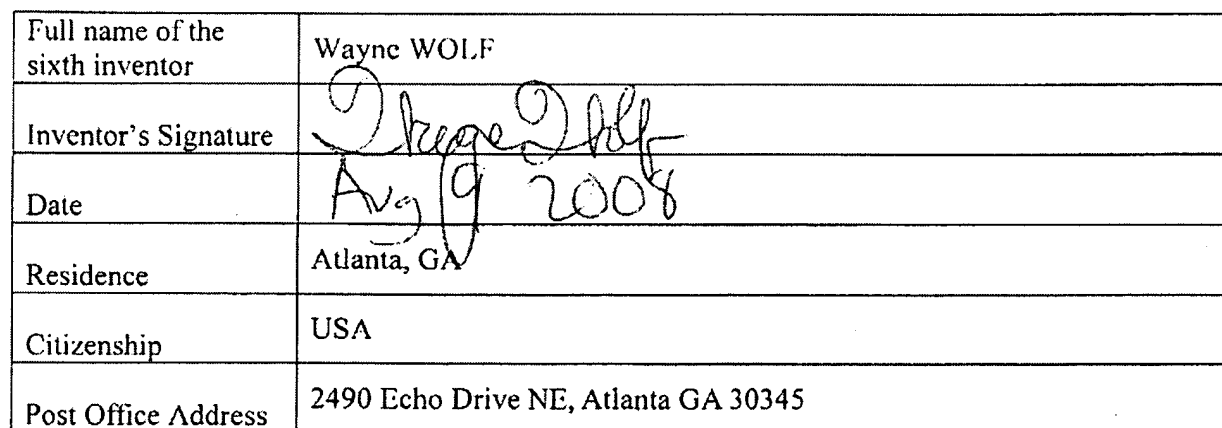 Full name of the
sixth inventor
Wayne WOLF
Inventor's Signature
Wayne Wolf
Date
Aug 19 2008
Residence
Atlanta, GA
Citizenship
USA
Post Office Address
2490 Echo Drive NE, Atlanta GA 30345